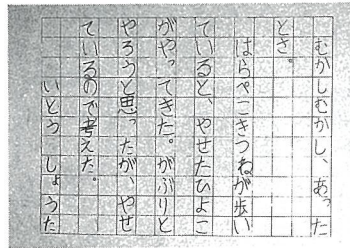 むかしむかし、あった
とさ。
はらぺこきつねが歩い
ていると、やせたひよこ
がやってきた。がぶりと
やろうと思ったが、やせ
ているので考えた。
いとう しょうた